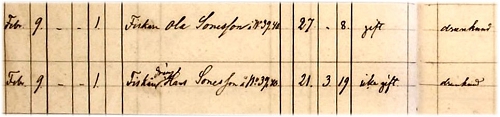 Febr. 9. - - 1. Fiskaren Ola Sonesson i No 39, 40. 27 - 8. gift drunknad
Febr. 9. - - 1. Fiskaren dräng Hans Sonesson i No 39, 40. 21. 3. 19 icke gift. drunknad